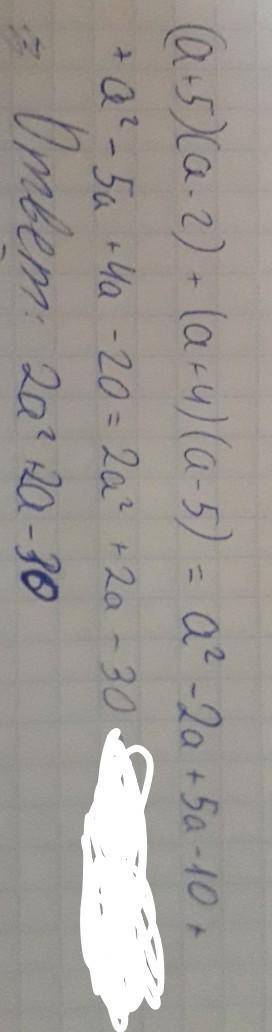 (a+5)(a-2) + (a+4)(a-5) = a² - 2a + 5a - 10 +
+ a² - 5a + 4a - 20 = 2a² + 2a - 30
Ответ: 2a² + 2a - 30